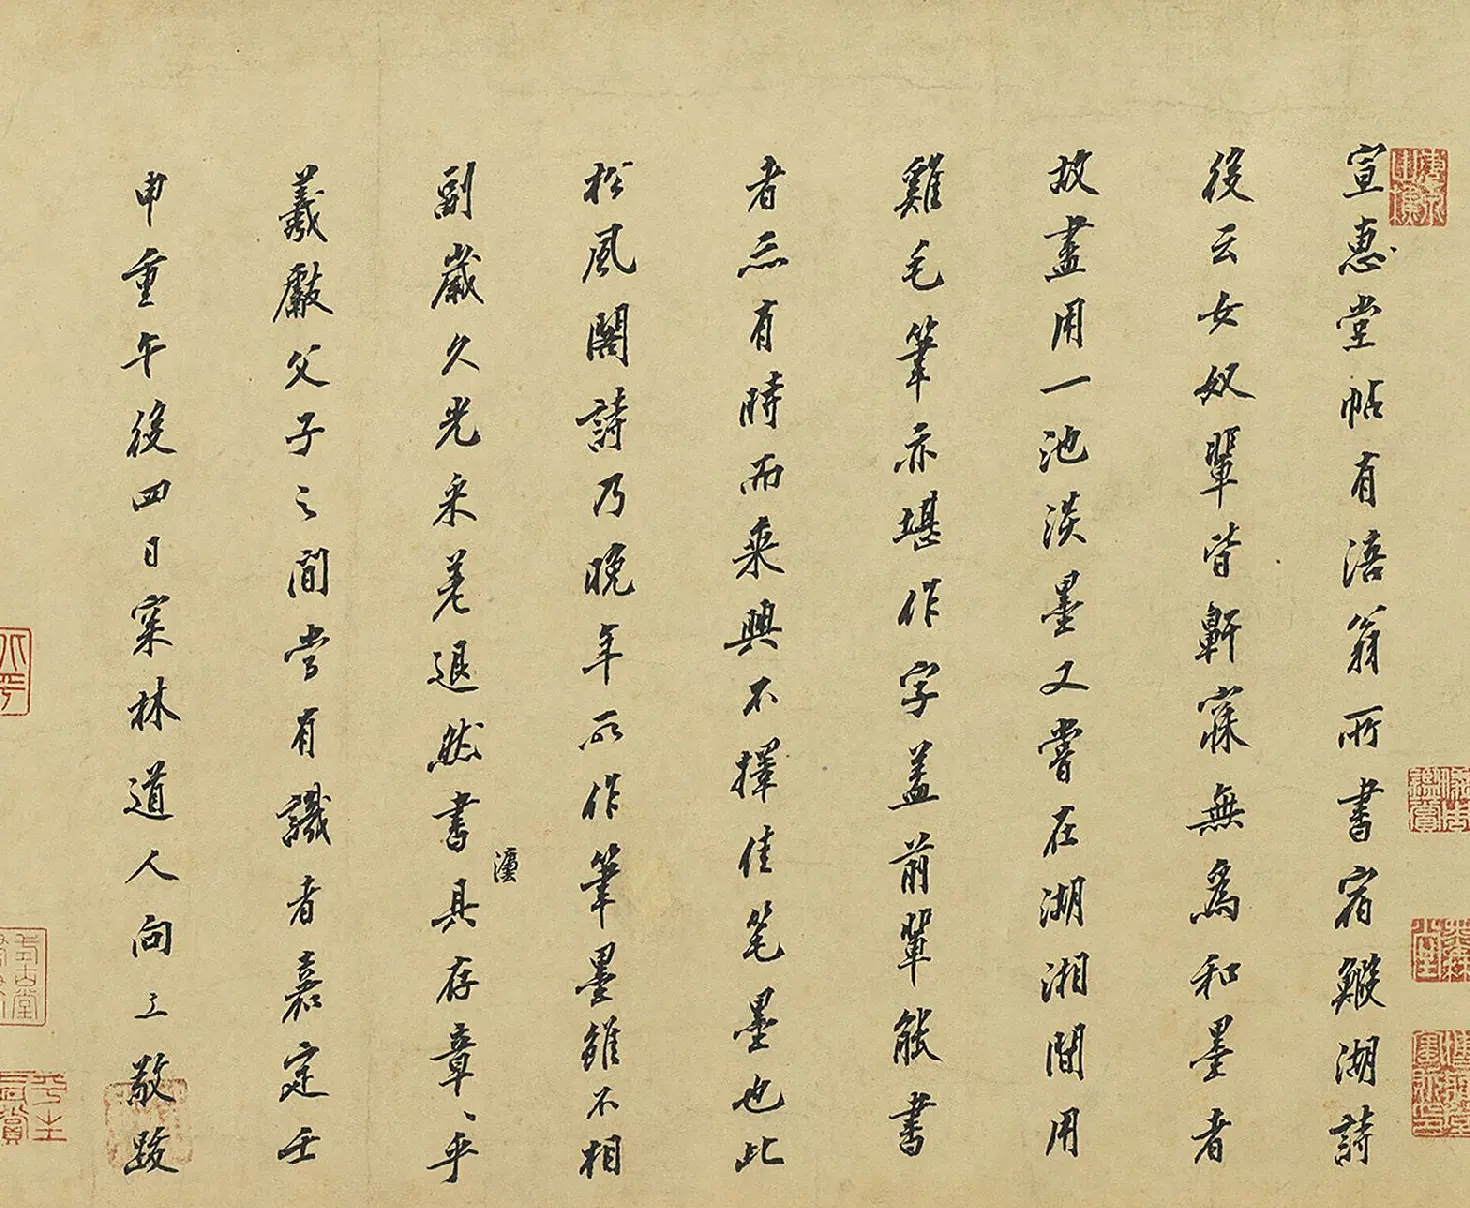 宣惠堂帖有涪翁所書宿鰀湖詩
後云女奴輩皆鼾寐無為和墨者
故盡用一池淡墨又嘗在湖湘間用
雞毛筆亦堪作字蓋前輩能書
者亦有時而乘興不擇佳笔墨也此
松風閣詩乃晚年所作筆墨雖不相
副歲久光采差退然書法具存章、乎
羲獻父子之間當有識者嘉定壬
申重午後四日寀林道人向工敬跋